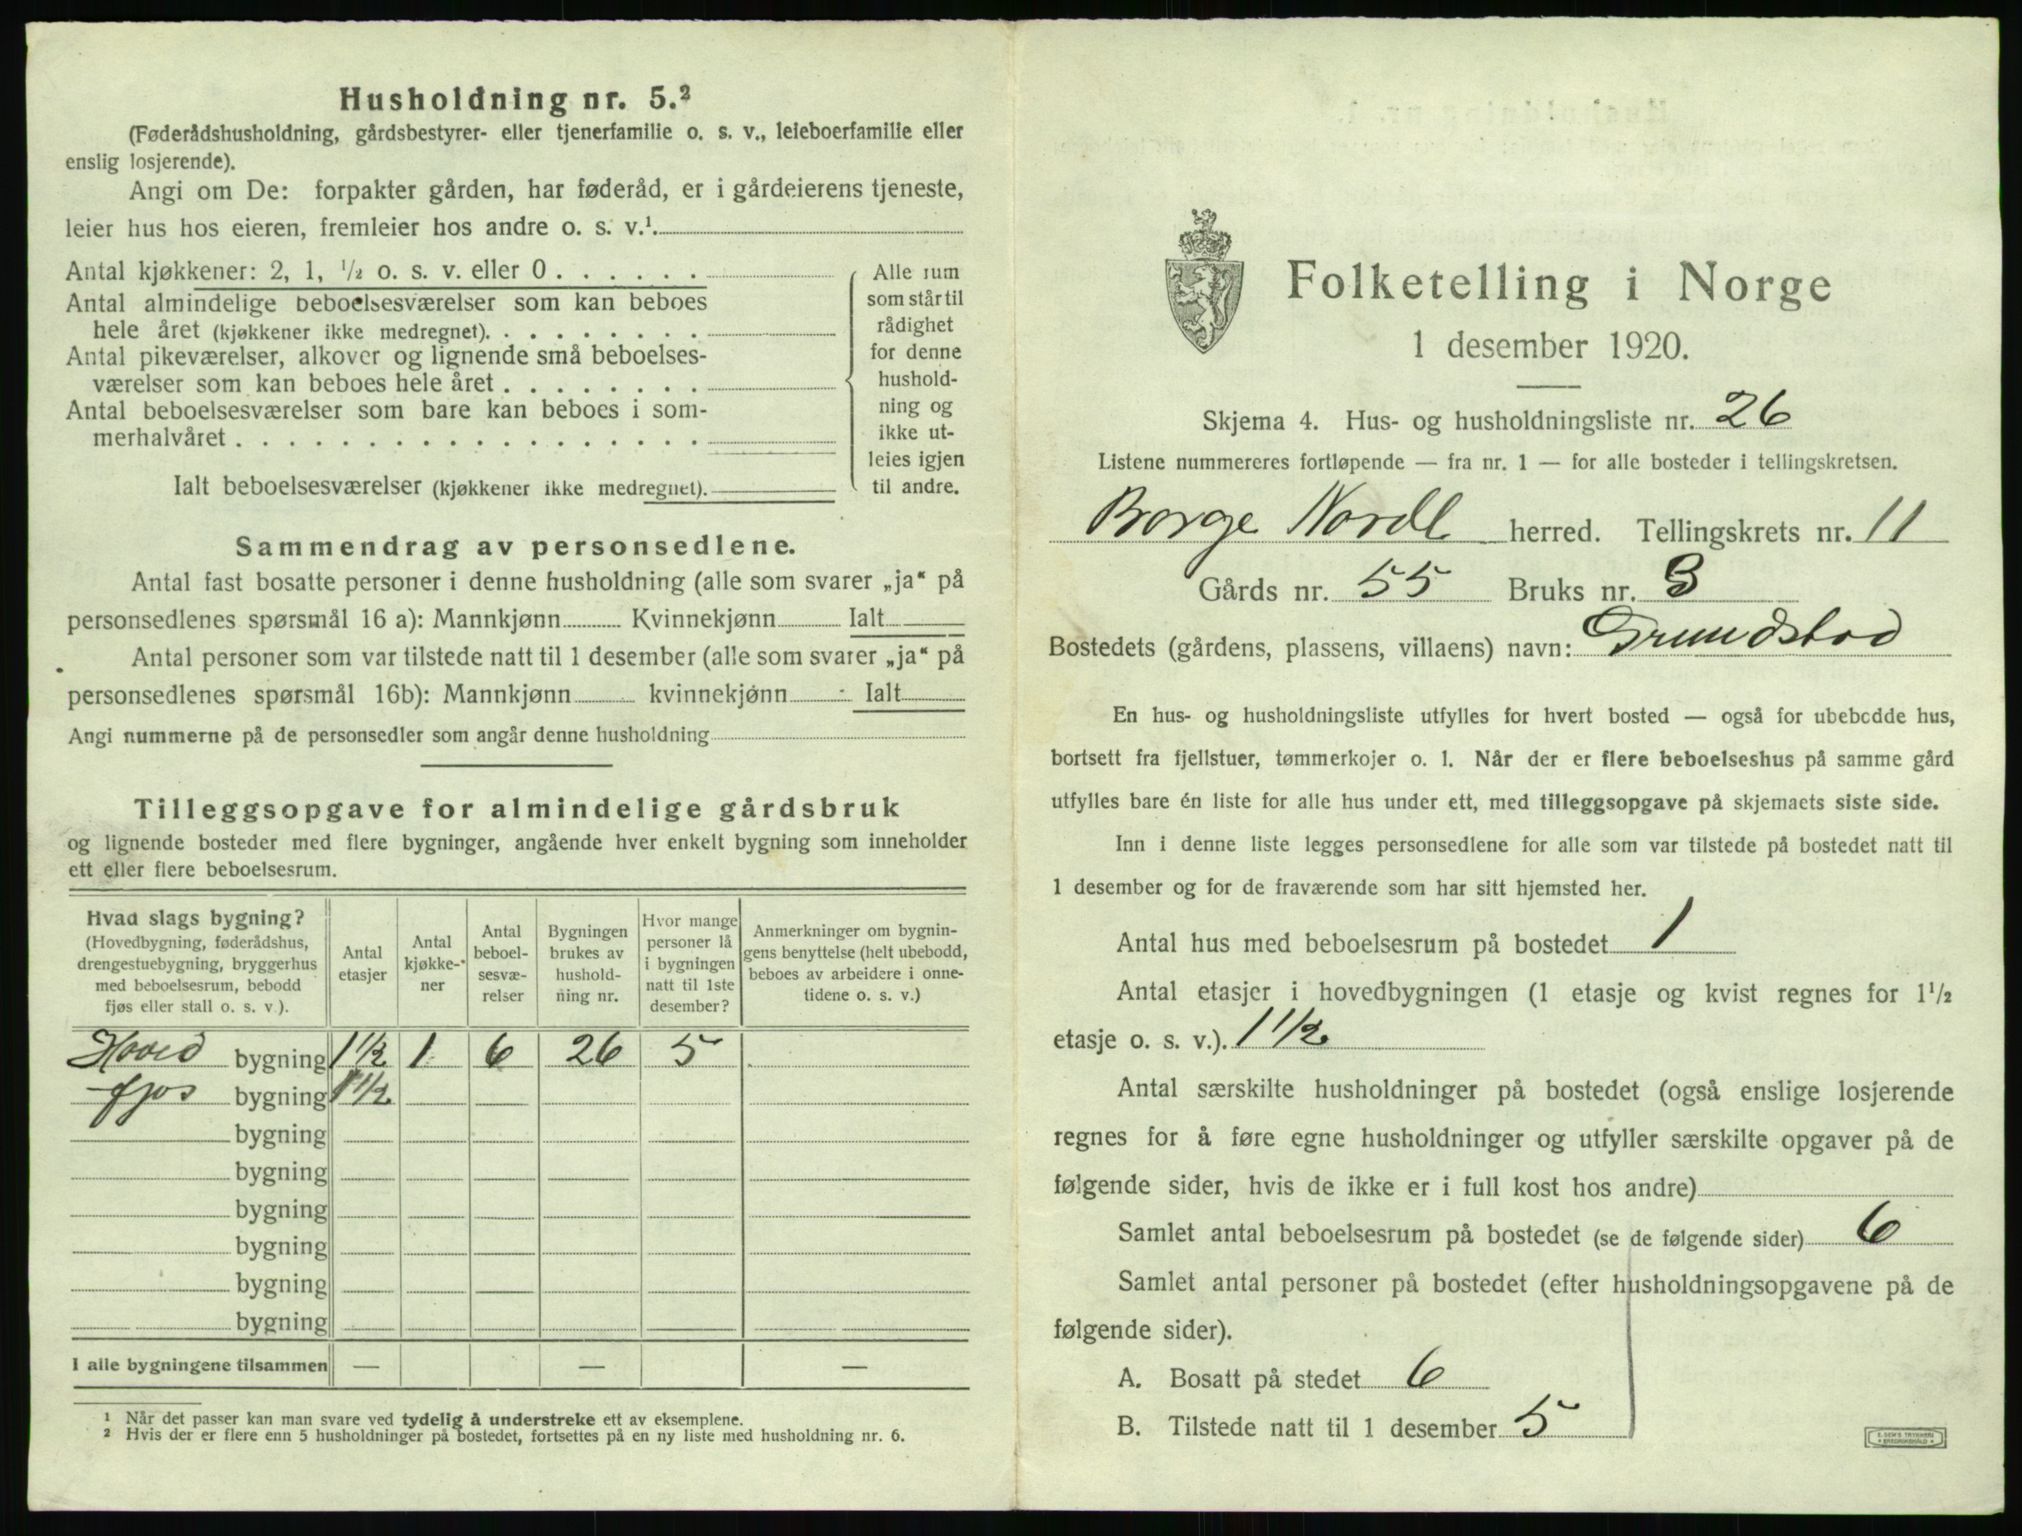 Husholdning nr. 5.²
(Føderådshusholdning, gårdsbestyrer- eller tjenerfamilie o. s. v., leieboerfamilie eller
enslig losjerende).
Angi om De: forpakter gården, har føderåd, er i gårdeierens tjeneste,
leier hus hos eieren, fremleier hos andre o. s. v.¹.
Antal kjøkkener: 2, 1, ½ o. s. v. eller 0 . . . . . .
Antal almindelige beboelsesværelser som kan beboes
hele året (kjøkkener ikke medregnet). . . . . . . . .
Antal pikeværelser, alkover og lignende små beboelses-
værelser som kan beboes hele året . . . . . . . .
Antal beboelsesværelser som bare kan beboes i som-
merhalvåret . . . . . . . . . . . . . . . . . .
Ialt beboelsesværelser (kjøkkener ikke medregnet).
Alle rum
som står til
rådighet
for denne
hushold-
ning og
ikke ut-
leies igjen
til andre.
Sammendrag av personsedlene.
Antal fast bosatte personer i denne husholdning (alle som svarer „ja“ på
personsedlenes spørsmål 16 a): Mannkjønn Kvinnekjønn Ialt
Antal personer som var tilstede natt til 1 desember (alle som svarer „ja“ på
personsedlenes spørsmål 16b): Mannkjønn kvinnekjønn Ialt
Angi nummerne på de personsedler som angår denne husholdning
Tilleggsopgave for almindelige gårdsbruk
og lignende bosteder med flere bygninger, angående hver enkelt bygning som inneholder
ett eller flere beboelsesrum.
Hvad slags bygning?
(Hovedbygning, føderådshus,
drengestuebygning, bryggerhus
med beboelsesrum, bebodd
fjøs eller stall o. s. v.).
Antal
etasjer
Antal
kjøkke-
ner
Antal
beboel-
sesvæ-
relser
Bygningen
brukes av
hushold-
ning nr.
Hvor mange
personer lå
i bygningen
natt til 1ste
desember?
Anmerkninger om bygnin-
gens benyttelse (helt ubebodd,
beboes av arbeidere i onne-
tidene o. s. v.)
Hoved bygning 1 1/2 1 6 26 5
fjøs bygning 1 1/2
bygning
bygning
bygning
bygning
bygning
bygning
I alle bygningene tilsammen — — —
¹ Når det passer kan man svare ved tydelig å understreke ett av eksemplene.
² Hvis der er flere enn 5 husholdninger på bostedet, fortsettes på en ny liste med husholdning nr. 6.
Folketelling i Norge
1 desember 1920.
Skjema 4. Hus- og husholdningsliste nr. 26
Listene nummereres fortløpende — fra nr. 1 — for alle bosteder i tellingskretsen.
Borge Nordl herred. Tellingskrets nr. 11
Gårds nr. 55 Bruks nr. 3
Bostedets (gårdens, plassens, villaens) navn: Grundstad
En hus- og husholdningsliste utfylles for hvert bosted — også for ubebodde hus,
bortsett fra fjellstuer, tømmerkojer o. l. Når der er flere beboelseshus på samme gård
utfylles bare én liste for alle hus under ett, med tilleggsopgave på skjemaets siste side.
Inn i denne liste legges personsedlene for alle som var tilstede på bostedet natt til
1 desember og for de fraværende som har sitt hjemsted her.
Antal hus med beboelsesrum på bostedet 1
Antal etasjer i hovedbygningen (1 etasje og kvist regnes for 1½
etasje o. s. v.). 1 1/2
Antal særskilte husholdninger på bostedet (også enslige losjerende
regnes for å føre egne husholdninger og utfyller særskilte opgaver på de
følgende sider, hvis de ikke er i full kost hos andre)
Samlet antal beboelsesrum på bostedet (se de følgende sider) 6
Samlet antal personer på bostedet (efter husholdningsopgavene på de
følgende sider).
A. Bosatt på stedet 6
B. Tilstede natt til 1 desember 5